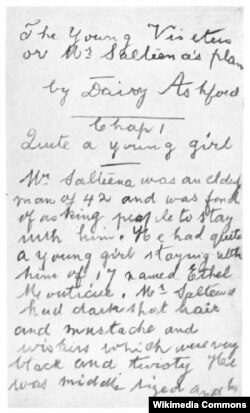 The Young Visiters
or Mr Salteena's plan
by Daisy Ashford
Chap 1
Quite a young girl
Mr Salteena was an elderly
man of 42 and was fond
of asking people to stay
with him. He had quite
a young girl staying with
him of 17 named Ethel
Monticue. Mr Salteena
had dark short hair
and mustache and
wiskers which were very
black and twisty He
was middle sized and he
Wikimedia Commons